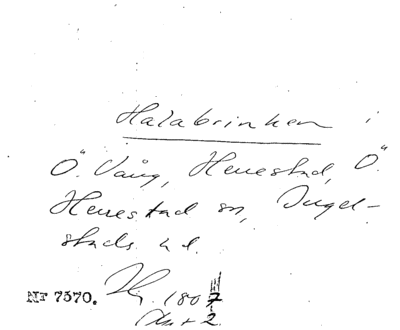 Halabrinken i
Ö. Vång, Herrestad, Ö.
Herrestad sn, Ingel-
stads hd.
NF 7370. 180